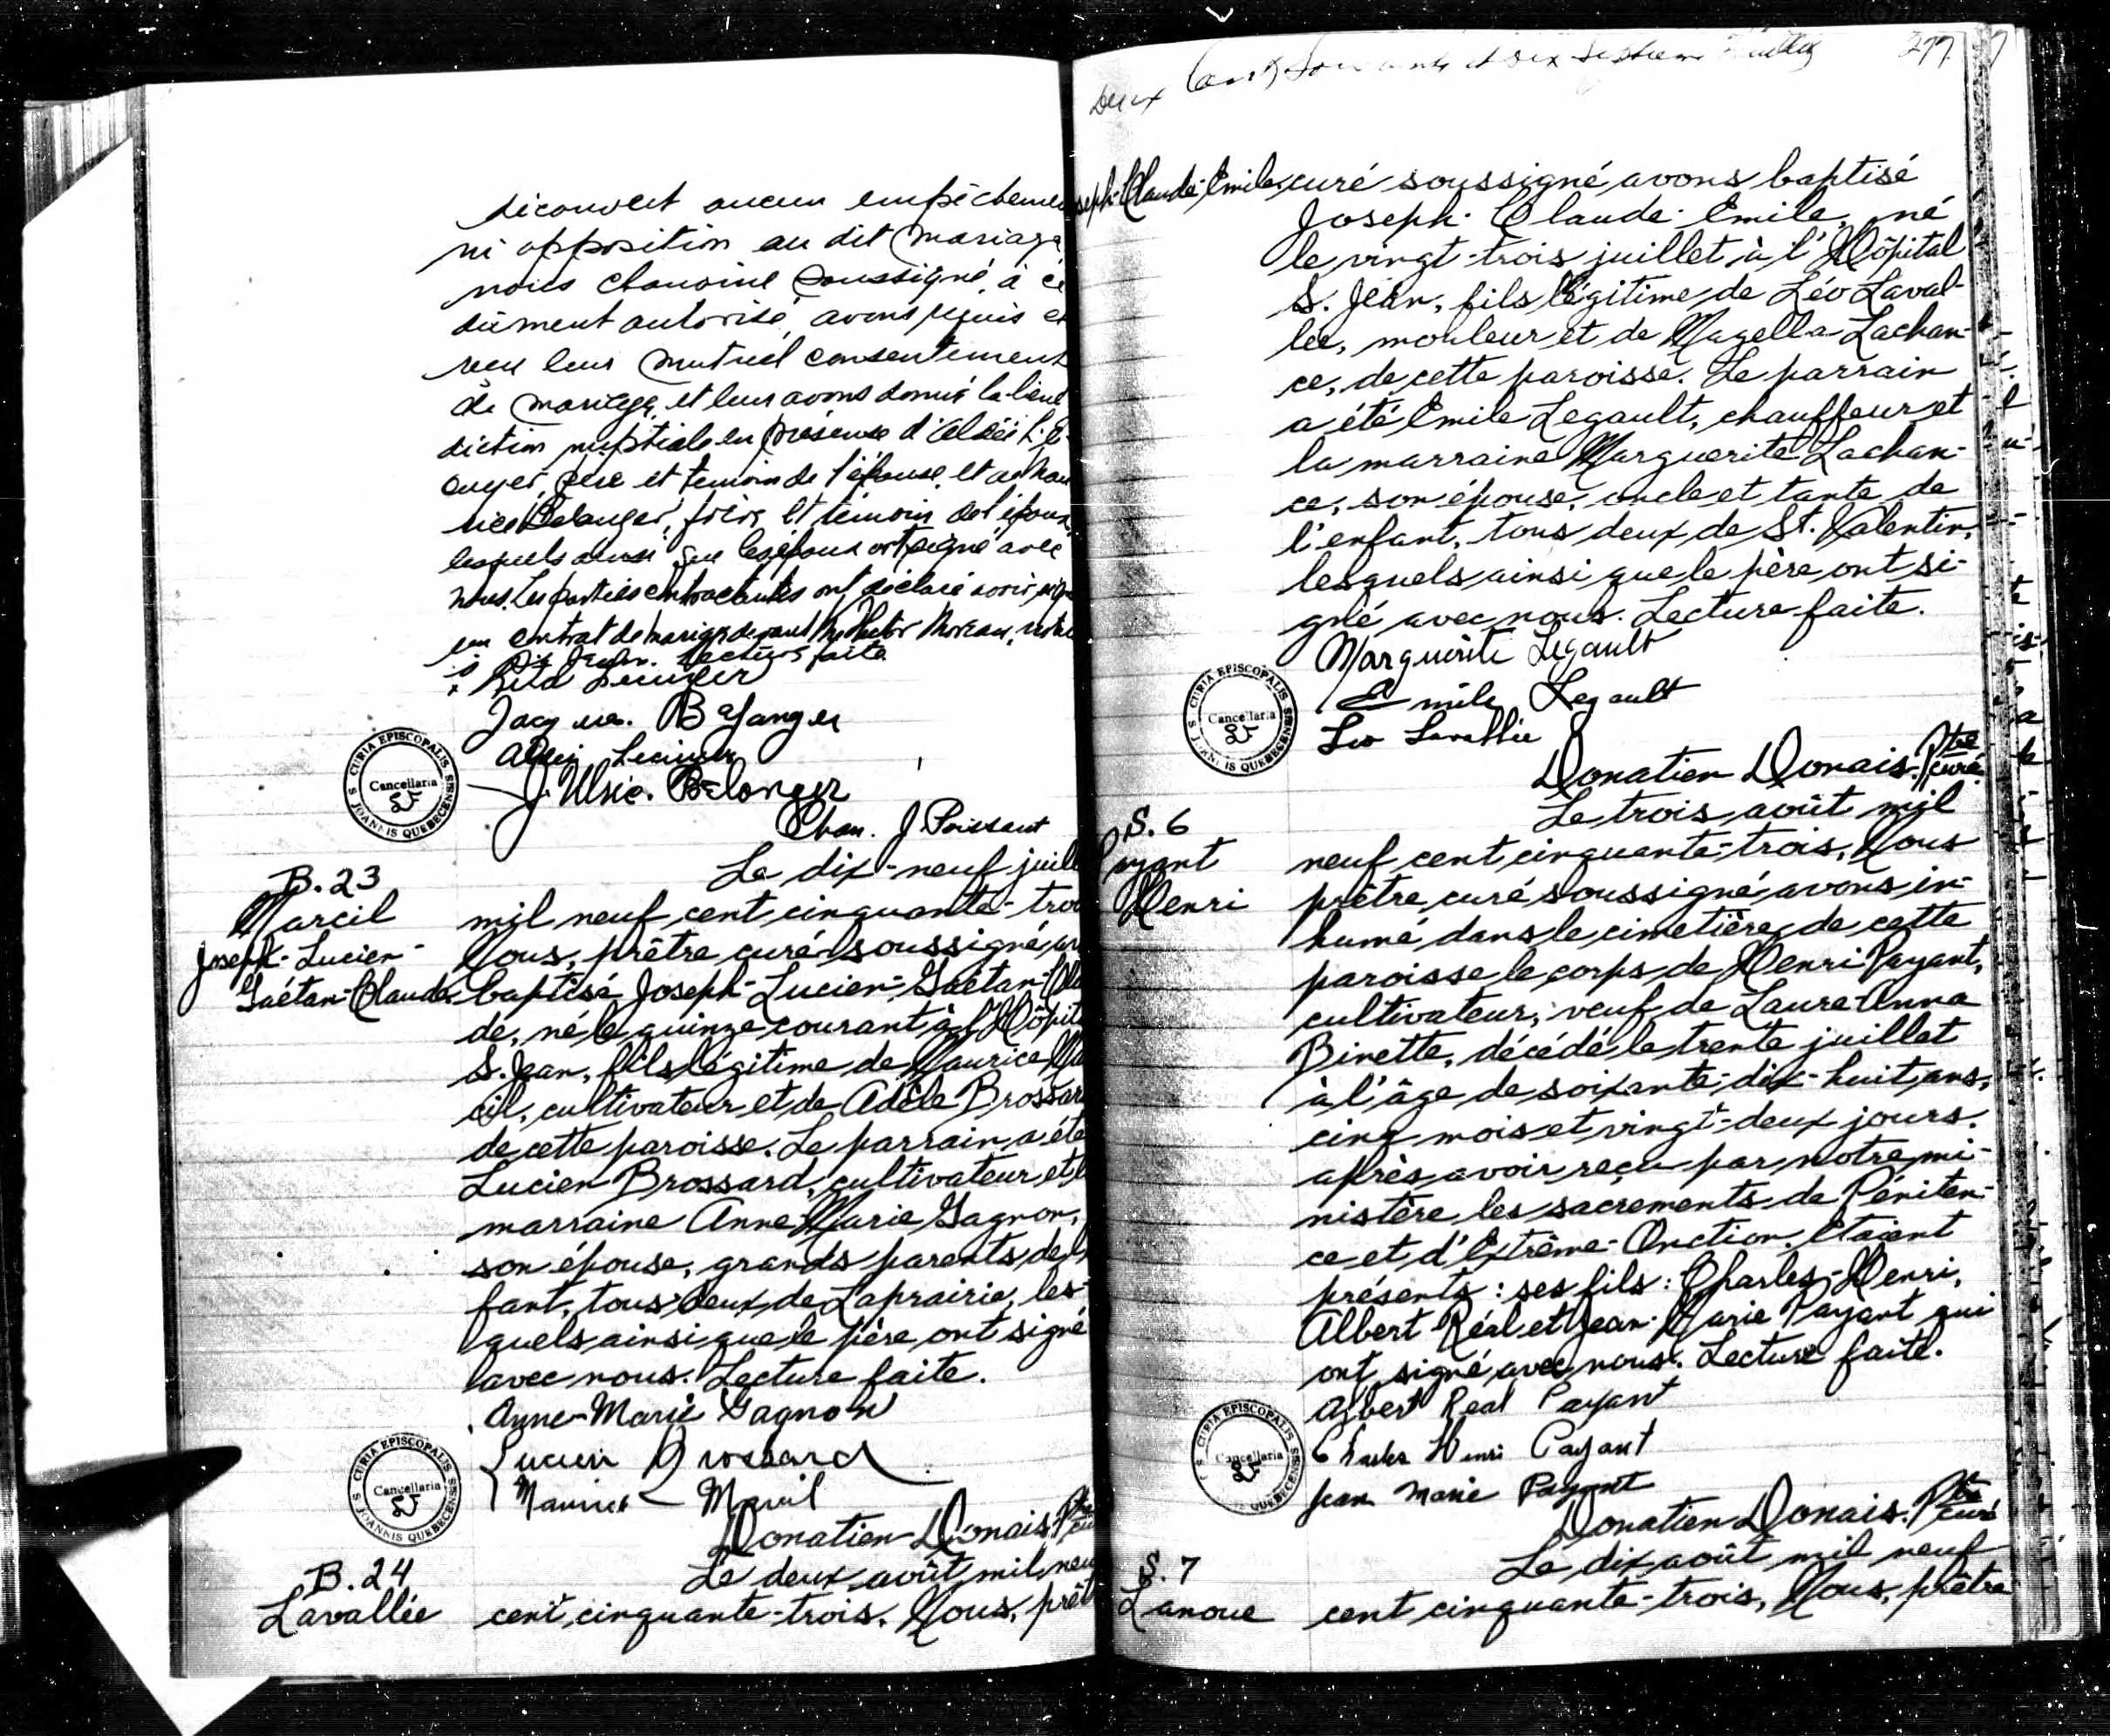 découvert aucun empêcheme
ni opposition au dit mariage
nous chanoine soussigné, à ce
dûment autorisé, avons requis et
reçu leur mutuel consentement
de mariage, et leur avons donné la béné
diction nuptiale en présence d'
père et témoin de l'épouse, et de
Bélanger, frère et témoin de l'époux,
lesquels ainsi que les époux ont signé avec
nous. Les parties contractantes ont déclaré avoir signé
un contrat de mariage devant Hector Moreau,
Lecture faite
Rita
Jacques. Bélanger
J. Ulric. Bélanger
Chan. J. Poissant
B. 23
Marcil
Joseph-Lucien-
Gaétan-Claude
Le dix-neuf juill
mil neuf cent cinquante-troi
Nous, prêtre curé soussigné, av
baptisé Joseph-Lucien-Gaétan-Cla
de, né le quinze courant à l'Hôpit
S. Jean, fils légitime de Maurice Ma
cil, cultivateur et de Adèle Brossar
de cette paroisse. Le parrain a été
Lucien Brossard, cultivateur et l
marraine Anne-Marie Gagnon,
son épouse, grands parents de l
fant, tous deux de Laprairie, les-
quels ainsi que le père ont signé
avec nous. Lecture faite.
Anne-Marie Gagnon
Lucien Brossard
Maurice Marcil
Donatien Donais. Ptre
B. 24
Lavallée
Le deux août mil neu
cent cinquante-trois. Nous, prêt
CURIA EPISCOPALIS S JOANNIS QUEBECENSIS
Cancellaria
CURIA EPISCOPALIS S JOANNIS QUEBECENSIS
Cancellaria
Deux Cent soixante et dix septième feuillet
277
seph-Claude-Emile
curé soussigné avons baptisé
Joseph-Claude-Emile, né
le vingt-trois juillet à l'Hôpital
S. Jean, fils légitime de Léo Laval-
lée, mouleur et de Magella Lachan-
ce, de cette paroisse. Le parrain
a été Emile Legault, chauffeur et
la marraine Marguerite Lachan-
ce, son épouse, oncle et tante de
l'enfant, tous deux de St. Valentin,
lesquels ainsi que le père ont si-
gné avec nous. Lecture faite.
Marguerite Legault
Emile Legault
Léo Lavallée
Donatien Donais. Ptre curé
CURIA EPISCOPALIS S JOANNIS QUEBECENSIS
Cancellaria
S. 6
Payant
Henri
Le trois août mil
neuf cent cinquante-trois, Nous
prêtre curé soussigné avons in-
humé dans le cimetière de cette
paroisse le corps de Henri Payant,
cultivateur, veuf de Laure-Anna
Binette, décédé le trente juillet
à l'âge de soixante-dix-huit ans,
cinq mois et vingt-deux jours.
après avoir reçu par notre mi-
nistère les sacrements de Péniten-
ce et d'Extrême-Onction. Etaient
présents : ses fils : Charles-Henri,
Albert Réal et Jean-Marie Payant qui
ont signé avec nous. Lecture faite.
Albert Real Payant
Charles Henri Payant
Jean Marie Payant
Donatien Donais. Ptre curé
CURIA EPISCOPALIS S JOANNIS QUEBECENSIS
Cancellaria
S. 7
Lanoue
Le dix août mil neuf
cent cinquante-trois, Nous, prêtre